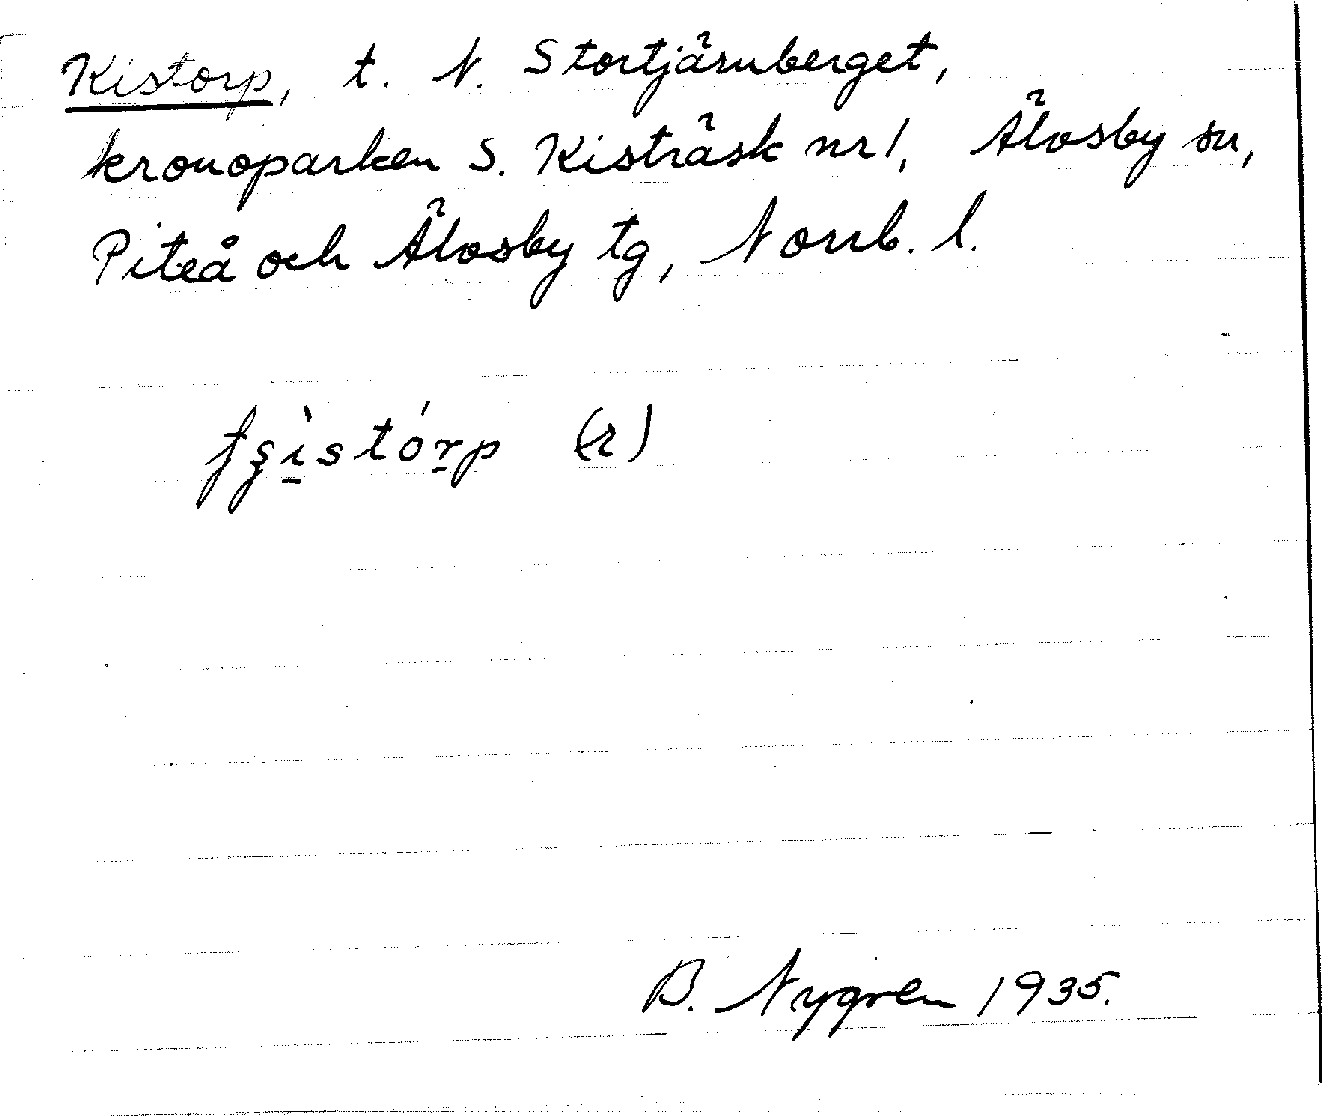 Kistorp, t. N. Stortjärnberget,
kronoparken S. Kisträsk nr 1, Älvsby sn,
Piteå och Älvsby tg, Norrb. l.
B. Nygren 1935.